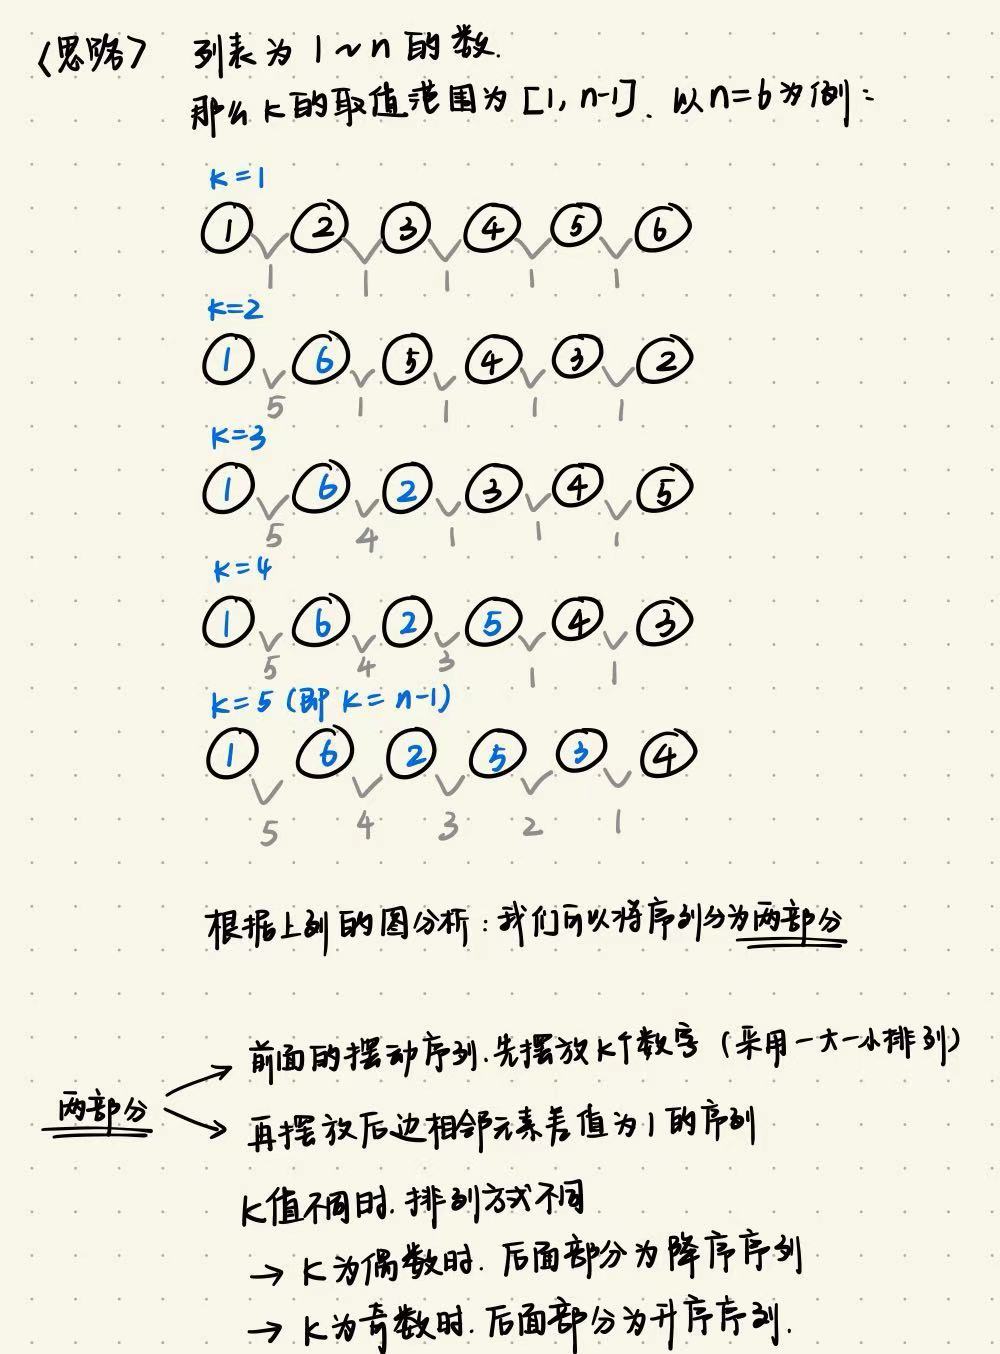 〈思路〉 列表为 1 ~ n 的数.
那么 k 的取值范围为 [1, n-1]. 以 n=6 为例:
k=1
1 2 3 4 5 6
1 1 1 1 1
k=2
1 6 5 4 3 2
5 1 1 1 1
k=3
1 6 2 3 4 5
5 4 1 1 1
k=4
1 6 2 5 4 3
5 4 3 1 1
k=5 (即 k=n-1)
1 6 2 5 3 4
5 4 3 2 1
根据上列的图分析:我们可以将序列分为两部分
前面的摆动序列.先摆放k个数字(采用一大一小排列)
两部分
再摆放后边相邻元素差值为1的序列
k值不同时.排列方式不同
→ k为偶数时.后面部分为降序序列
→ k为奇数时.后面部分为升序序列.